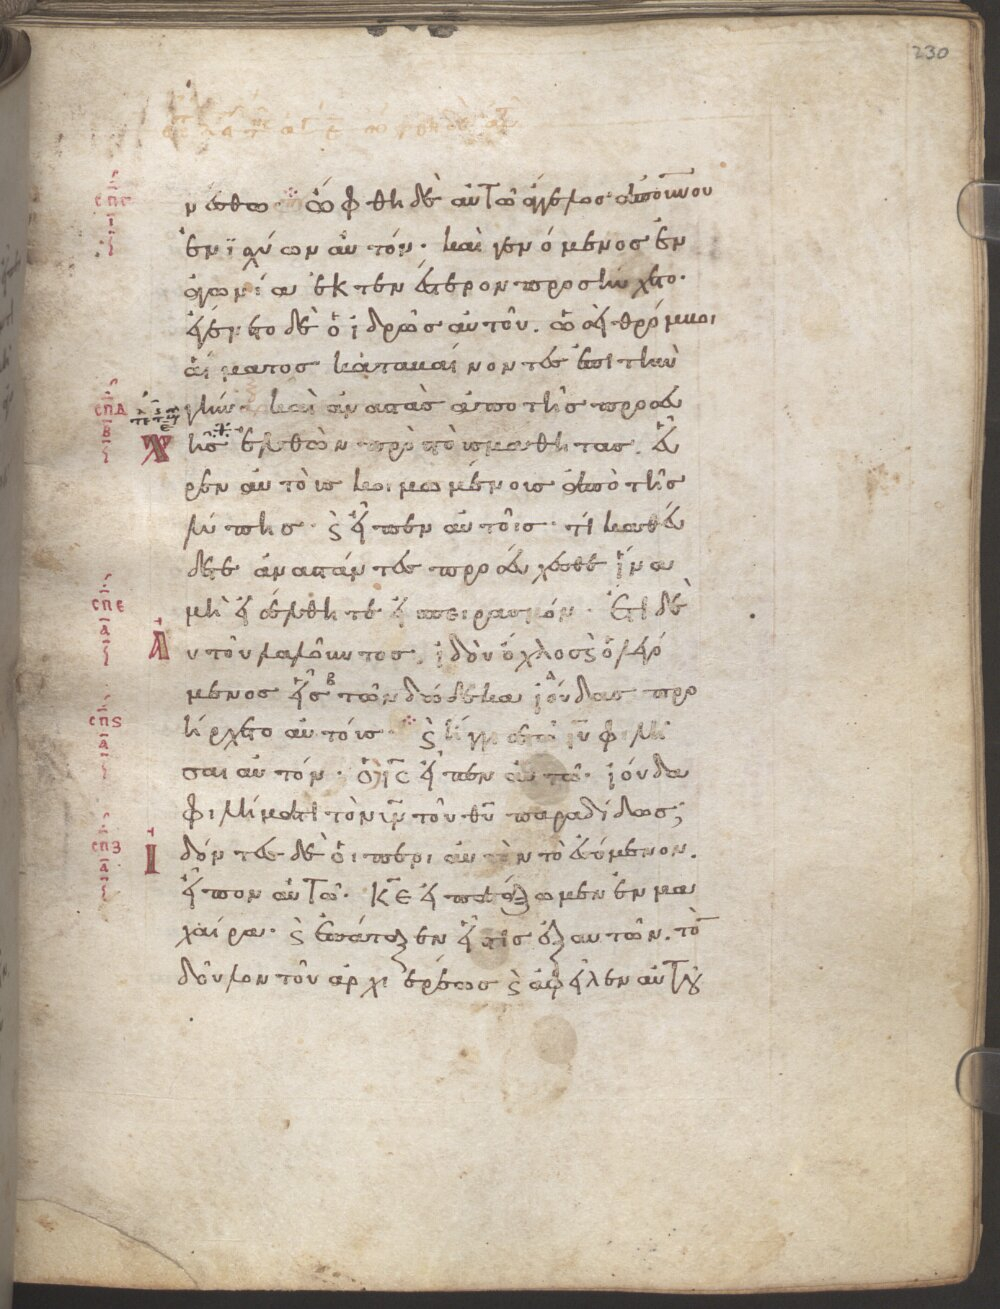 230
νέσθω ὤφθη δὲ αὐτῶ ἄγγελος ἀπ οὐνου
ἐνϊσχύων αὐτόν· καὶ γενόμενος ἐν
ἀγωνία ἐκτενέστερον προσηύχετο·
ἐγένετο δὲ ὁ ἱδρὼς αὐτοῦ. ὡσεὶ θρόμβοι
αἵματος καταβαίνοντες ἐπὶ τὴν
γῆν καὶ ἀναστὰς ἀπο τῆς προσευ
χῆς ἐλθὼν πρὸς τοὺς μαθητας. εὗ
ρεν αὐτοὺς κοιμωμένους ἀπὸ τῆς
λύπης· ϗ εἶπεν αὐτοῖς· τί καθεύ
δετε ἀναστάντες προσεύχεσθε ἵνα
μὴ εἰσέλθητε εἰς πειρασμόν· Ἔτι δὲ
Α
υτοῦ λαλοῦντος, ἰδοὺ ὄχλος ϗ ὁ λεγό
μενος εἷς τῶν δώδεκα ἰούδας προ
ήρχετο αὐτούς· ϗ ἤγγισε τῶ ιυ φιλῆ
σαι αὐτόν· ὁ ις εἶπεν αὐτῶ· ἰούδα
φιλήματι τὸν υν τοῦ ανου παραδίδως;
Ι
δόντες δὲ οἱ περι αὐτὸν τὸ ἐσόμενον.
εἶπον αὐτῶ· κε εἰ πατάξωμεν ἐν μα
χαίρα· ϗ ἐπάταξεν εἷς τις ἐξ αυτῶν. τὸν
δοῦλον τοῦ ἀρχιερέως ϗ ἀφεῖλεν αὐτοῦ
σπγ
ι
σπδ
β
σπε
α
σπς
α
σπζ
α